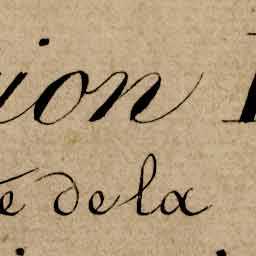 ion
e de la